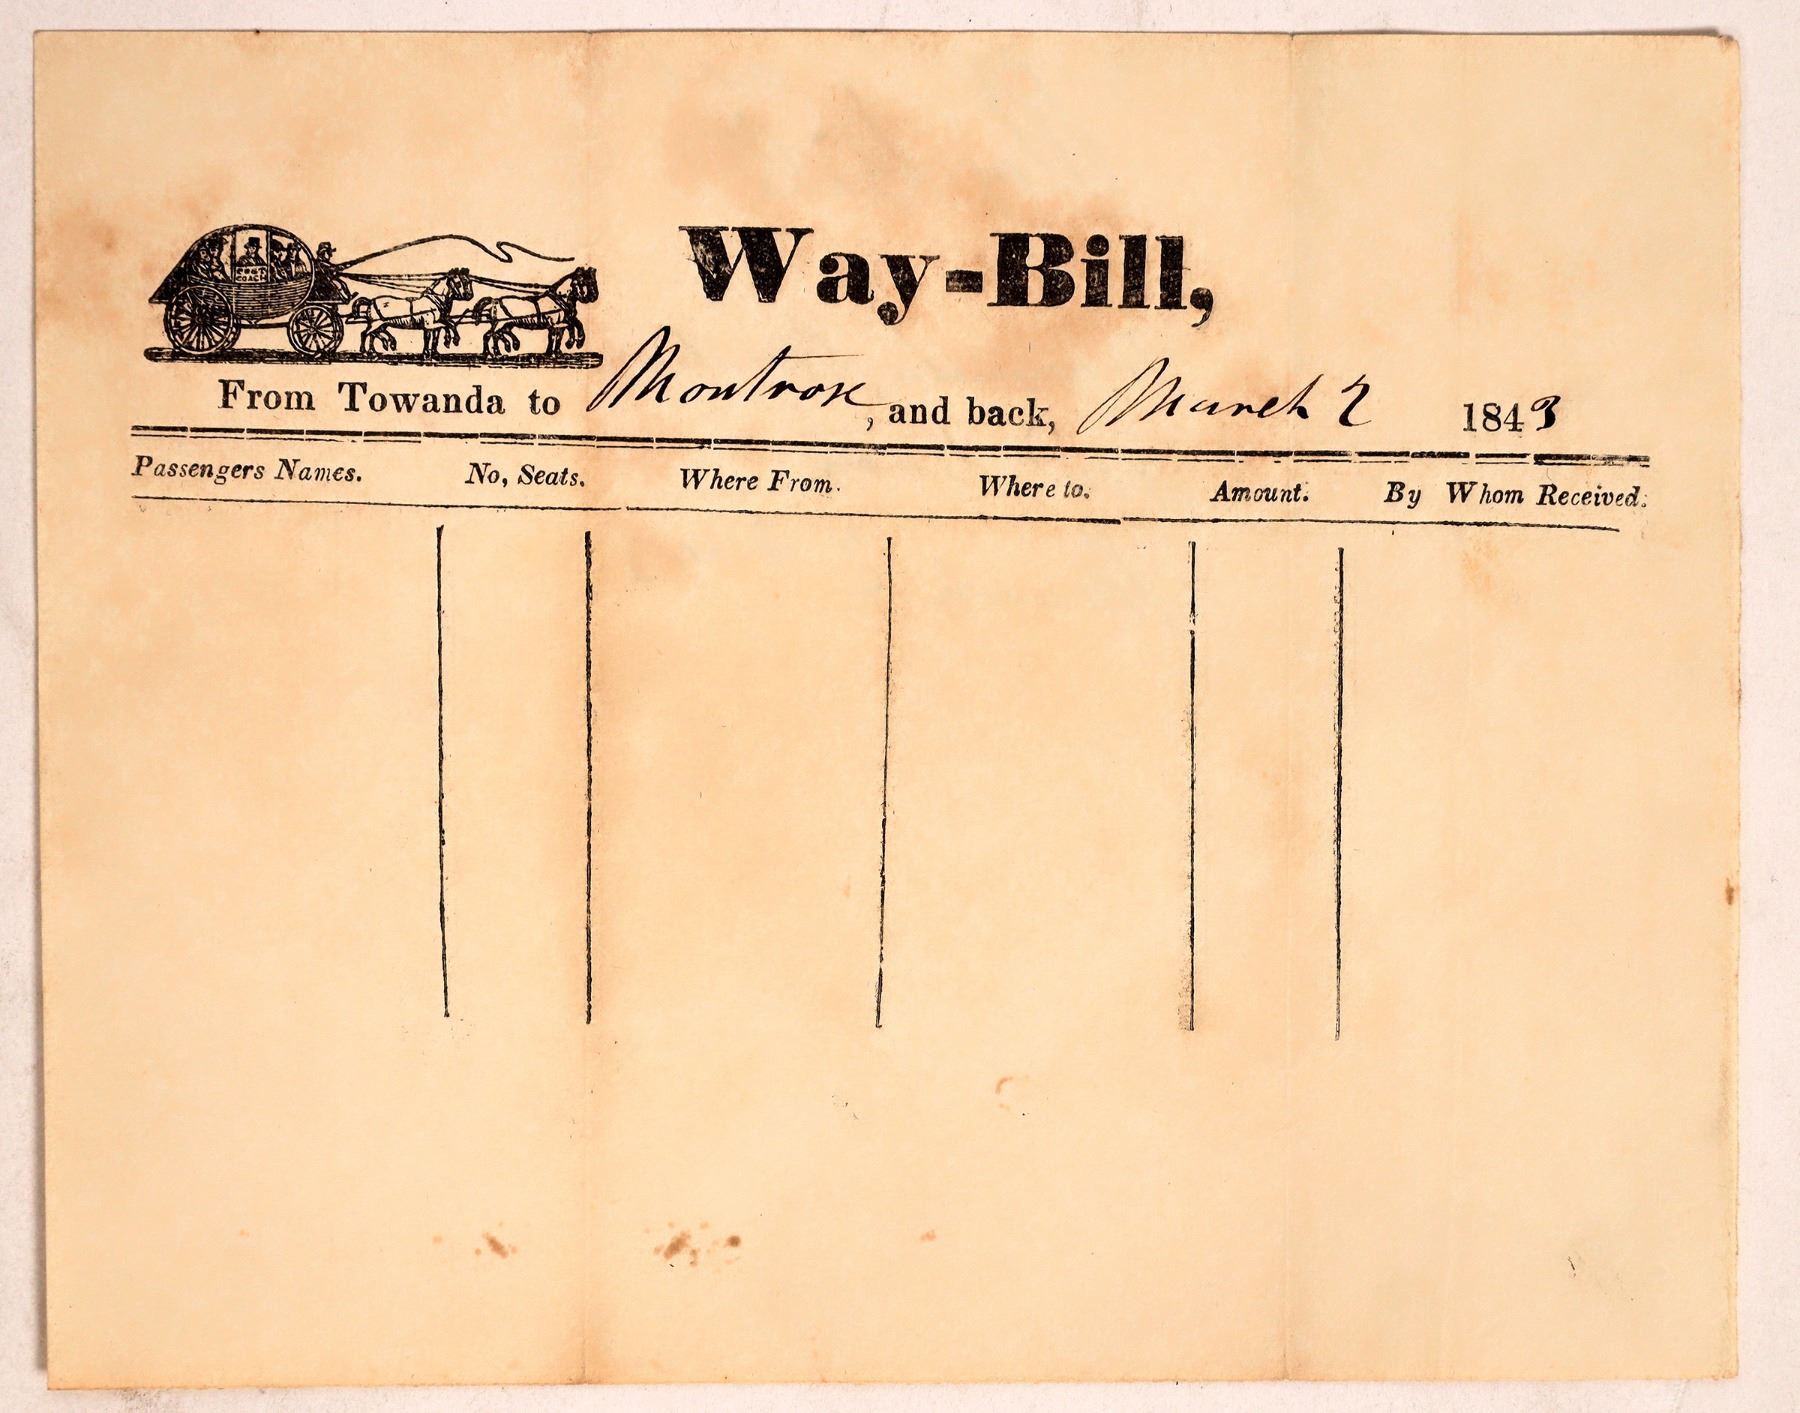 Way-Bill,
POST
COACH
From Towanda to Montrose, and back, March 2 1843
Passengers Names. No, Seats. Where From. Where to. Amount. By Whom Received.